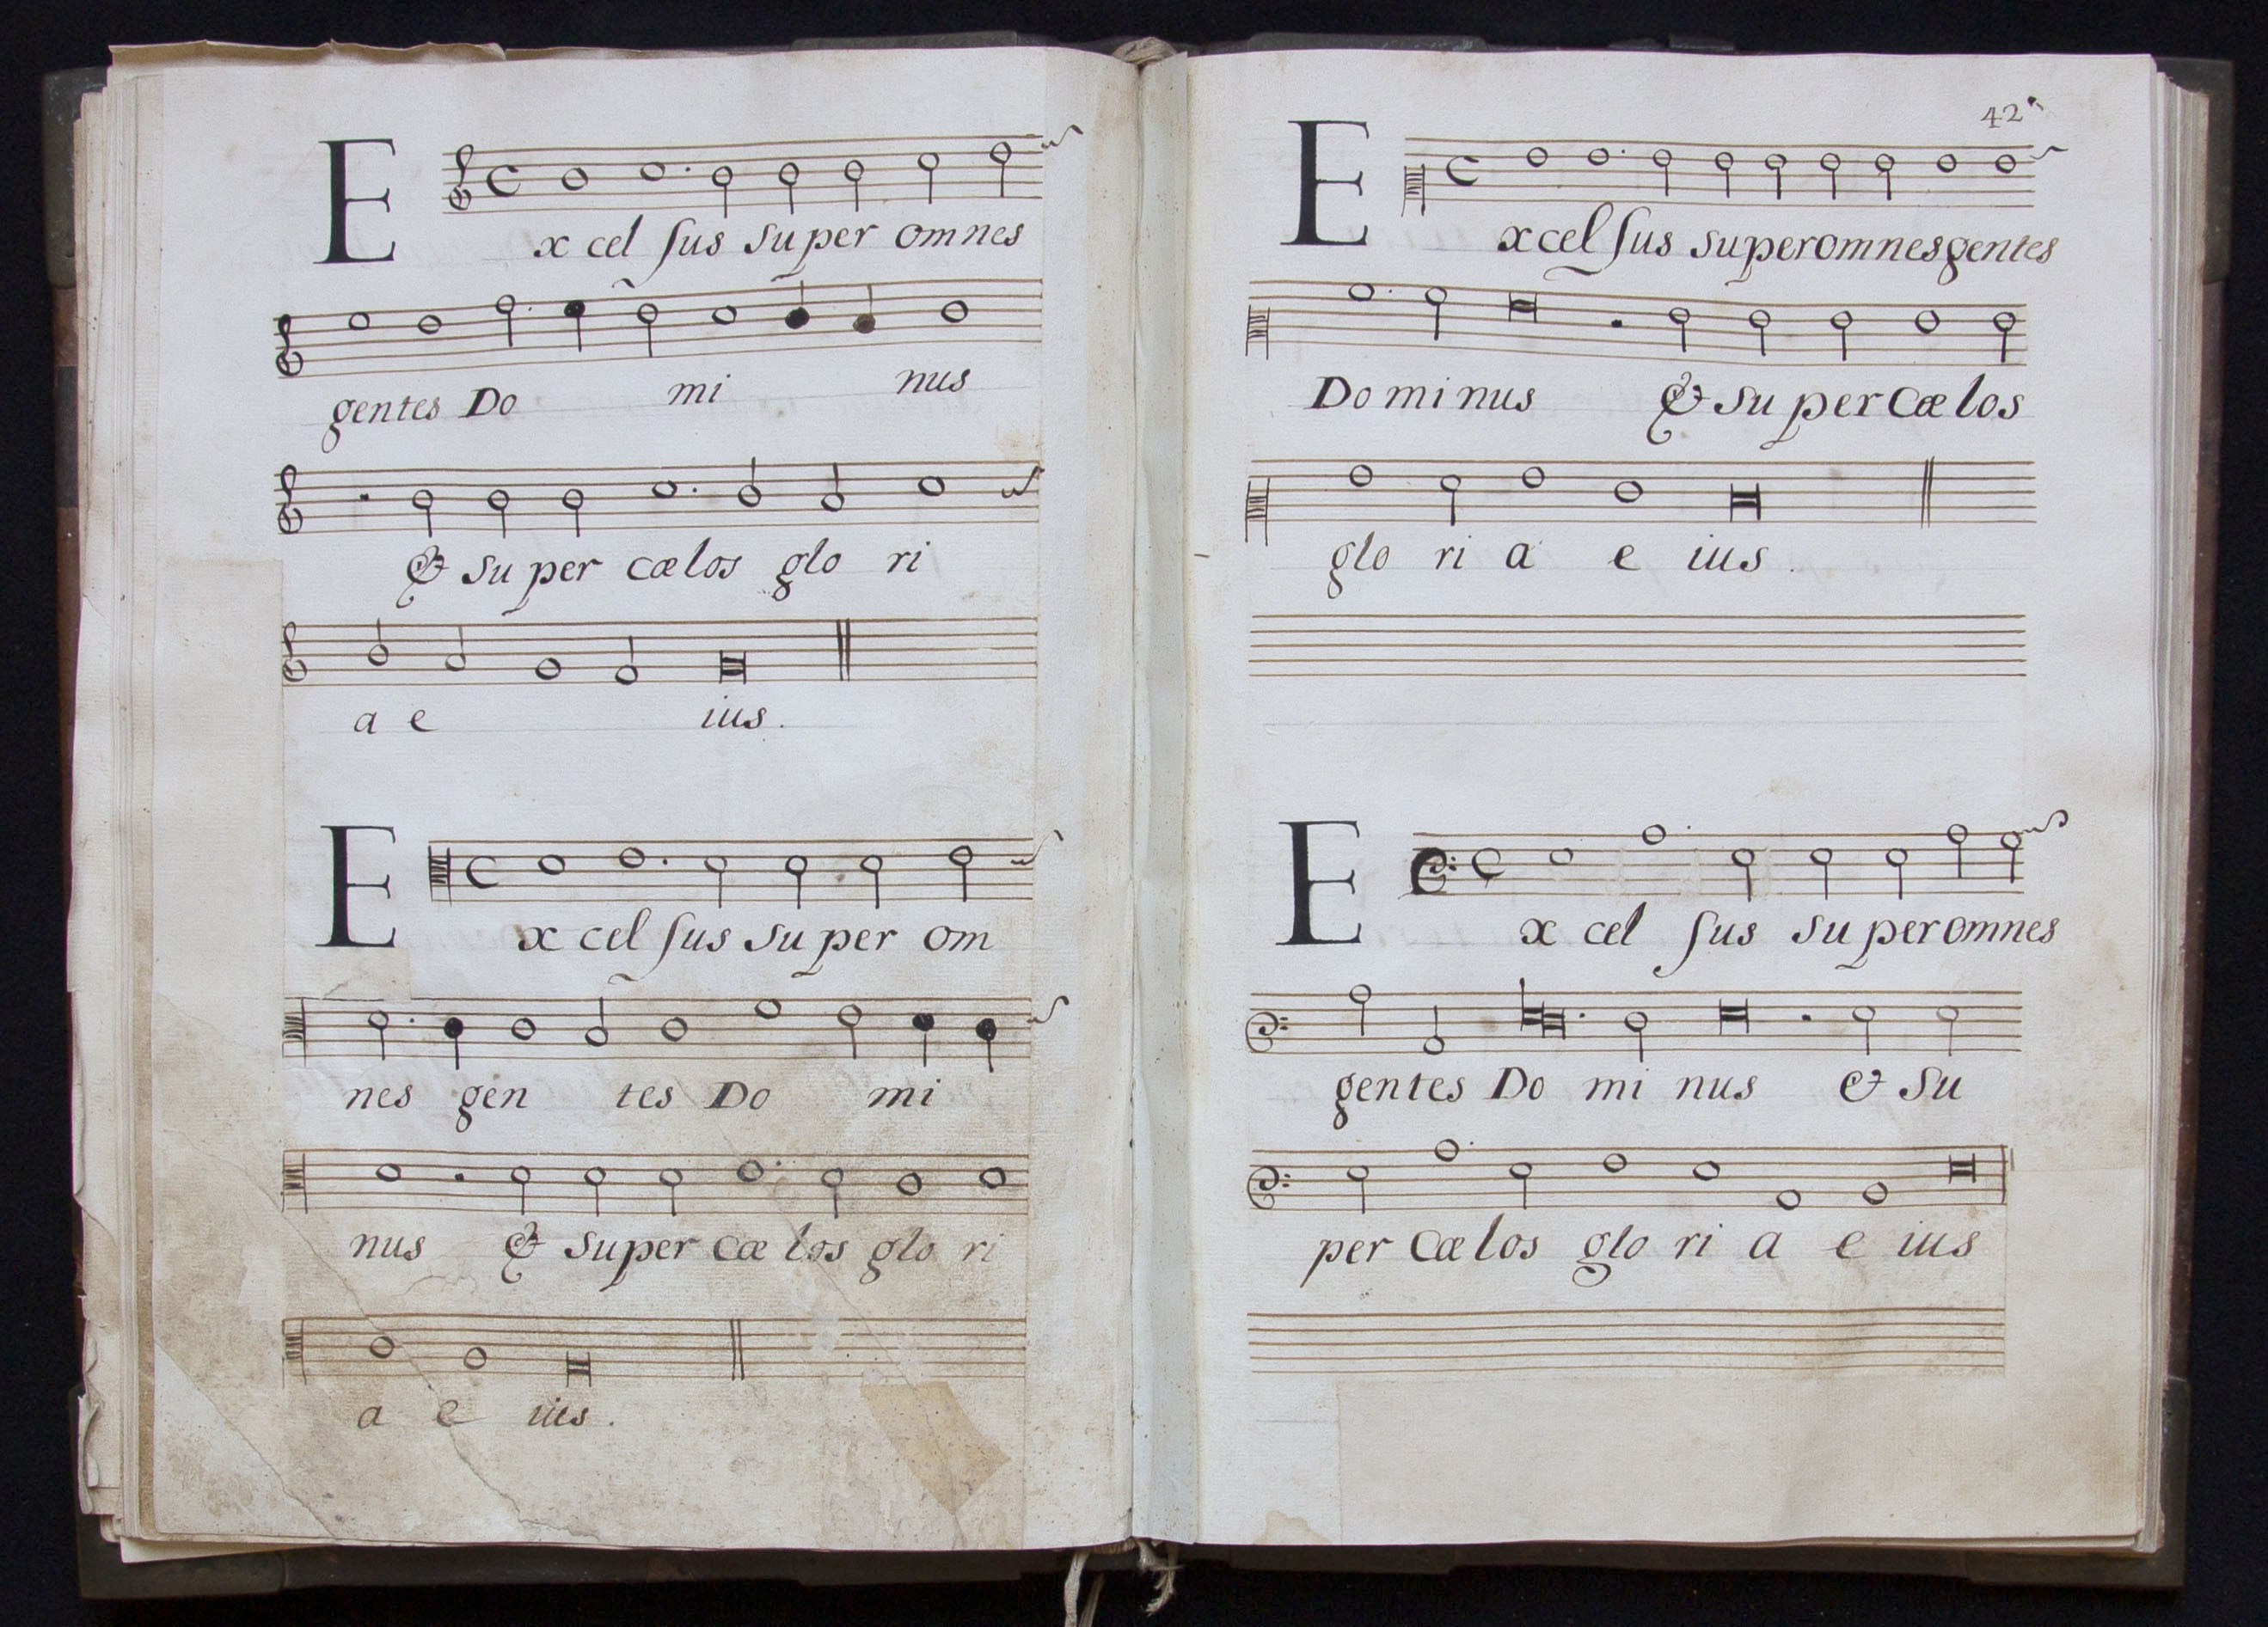 E
x cel ſus super omnes
gentes Do mi nus
& su per cælos glo ri
a e ius.
E
x cel ſus su per om
nes gen tes Do mi
nus & super cæ los glo ri
a e ius.
42
E
xcel ſus superomnesgentes
Do mi nus & su per cæ los
glo ri a e ius.
E
x cel ſus su per omnes
gentes Do mi nus & su
per cæ los glo ri a e ius